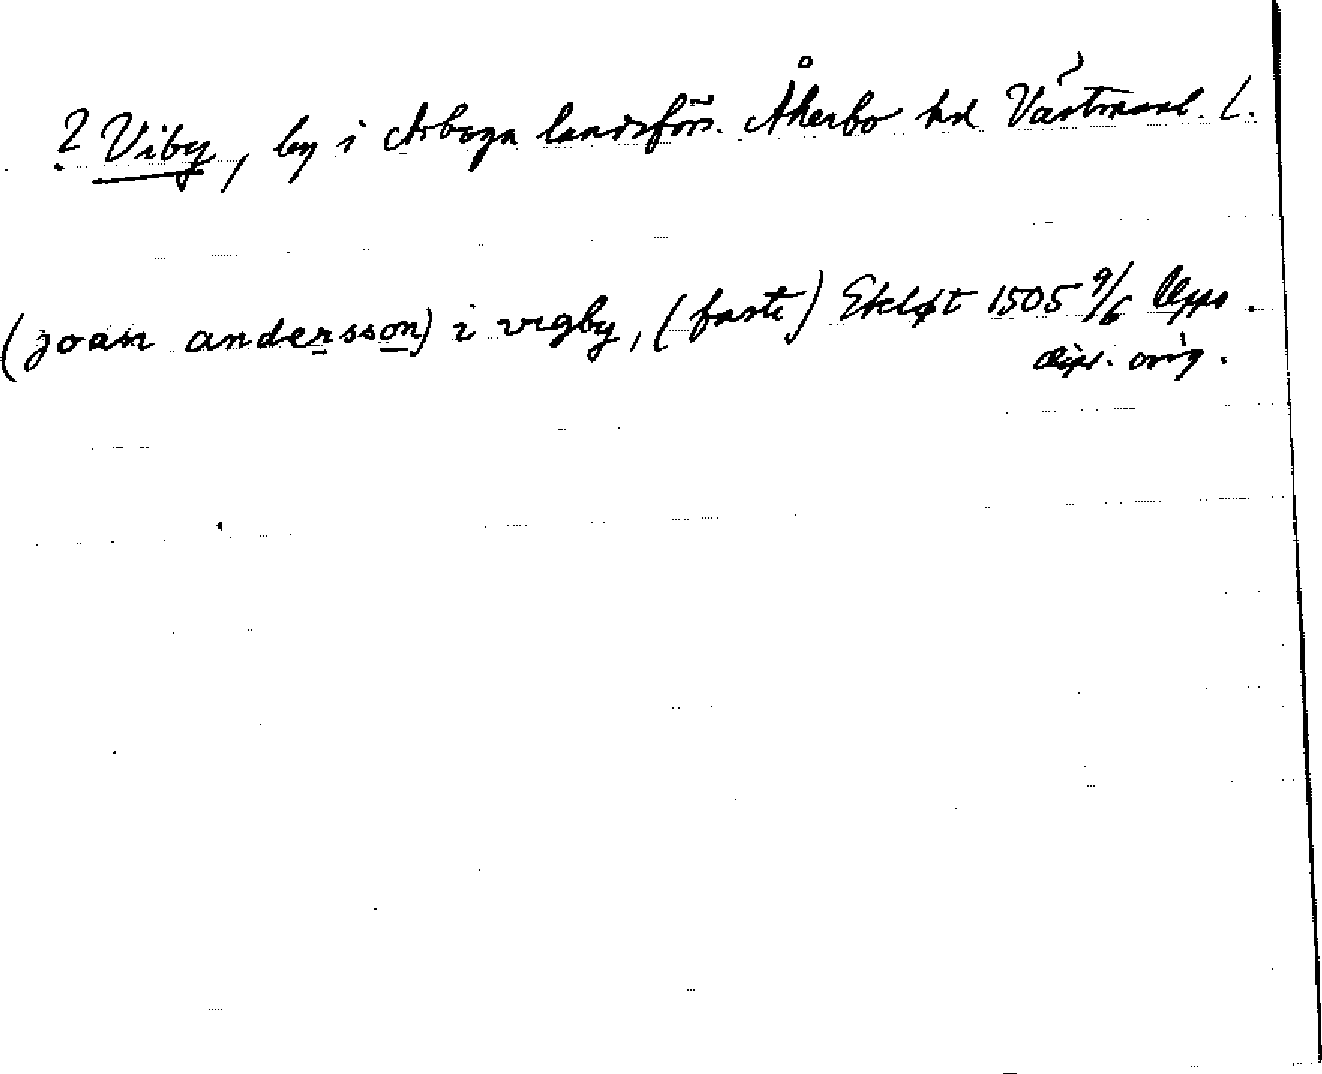 ? Viby, by i Arboga landsförs. Åkerbo hd Västmanl. l.
(joan andersson) i vigby, (faste) Ekløt 1505 9/6 Upps.
dipl. orig.